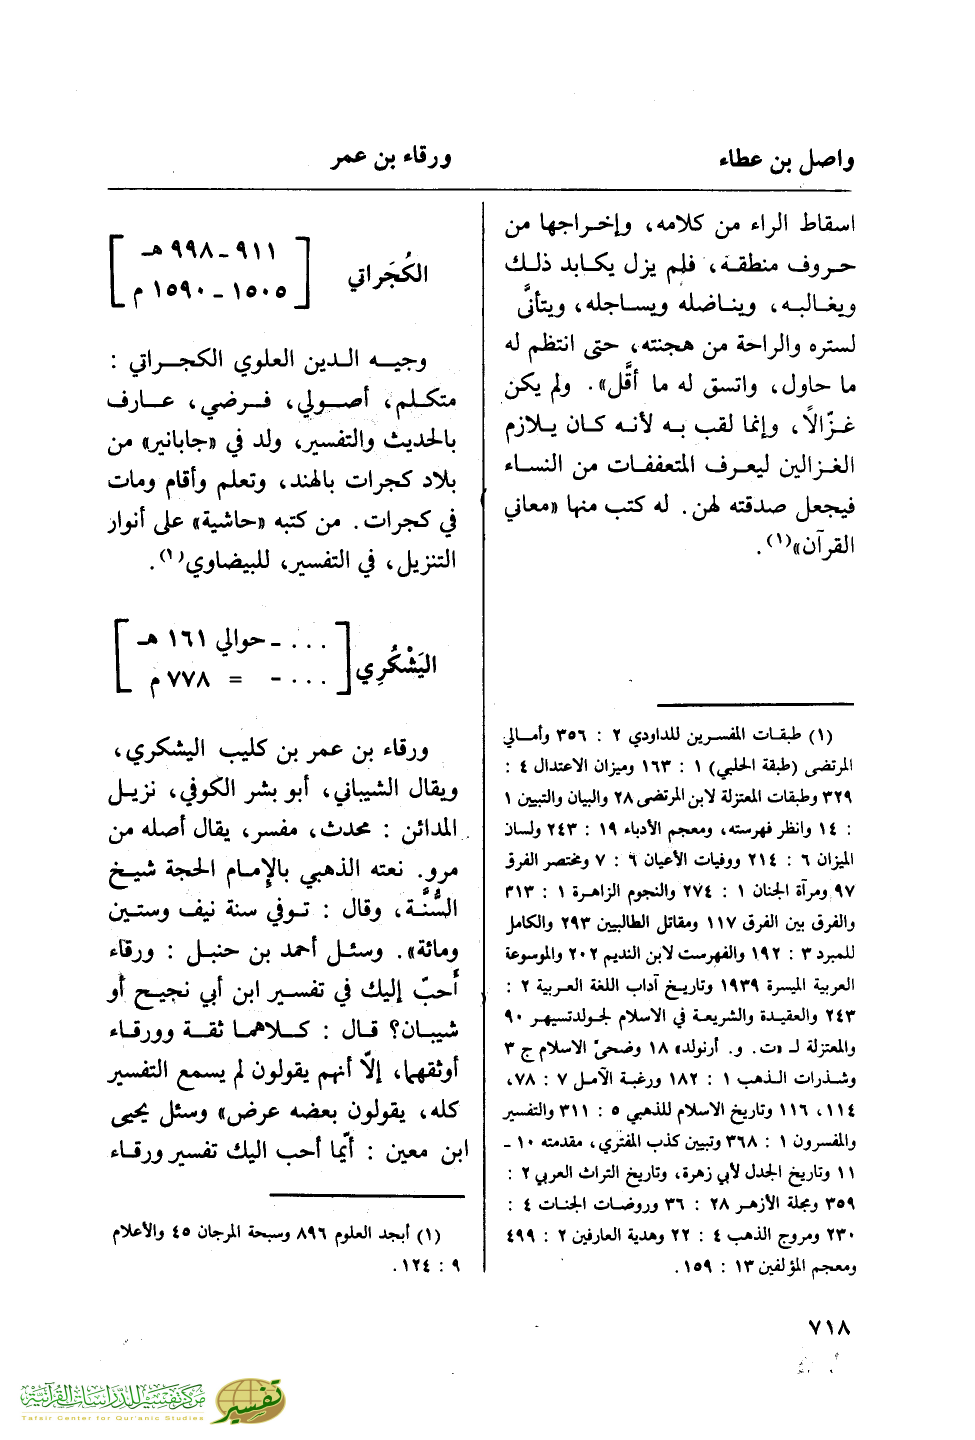 واصل بن عطاء
ورقاء بن عمر
اسقاط الراء من كلامه، وإخراجها من
حروف منطقه، فلم يزل يكابد ذلك
ويغالبه، ويناضله ويساجله، ويتأنَّى
لستره والراحة من هجنته، حتى انتظم له
ما حاول، واتسق له ما أقَّل». ولم يكن
غزّالاً، وإنما لقب به لأنه كان يلازم
الغزالين ليعرف المتعففات من النساء
فيجعل صدقته لهن. له كتب منها «معاني
القرآن»(١).
(١) طبقات المفسرين للداودي ٢ : ٣٥٦ وأمالي
المرتضى (طبقة الحلبي) ١ : ١٦٣ وميزان الاعتدال ٤ :
٣٢٩ وطبقات المعتزلة لابن المرتضى ٢٨ والبيان والتبيين ١
: ١٤ وانظر فهرسته، ومعجم الأدباء ١٩ : ٢٤٣ ولسان
الميزان ٦ : ٢١٤ ووفيات الأعيان ٦ : ٧ ومختصر الفرق
٩٧ ومرآة الجنان ١ : ٢٧٤ والنجوم الزاهرة ١ : ٣١٣
والفرق بين الفرق ١١٧ ومقاتل الطالبيين ٢٩٣ والكامل
للمبرد ٣ : ١٩٢ والفهرست لابن النديم ٢٠٢ والموسوعة
العربية الميسرة ١٩٣٩ وتاريخ آداب اللغة العربية ٢ :
٢٤٣ والعقيدة والشريعة في الاسلام لجولدتسيهر ٩٠
والمعتزلة لـ «ت. و. أرنولد» ١٨ وضحىً الاسلام ج ٣
وشذرات الذهب ١ : ١٨٢ ورغبة الآمل ٧ : ٧٨،
١١٤، ١١٦ وتاريخ الاسلام للذهبي ٥ : ٣١١ والتفسير
والمفسرون ١ : ٣٦٨ وتبيين كذب المفتري، مقدمته ١٠ -
١١ وتاريخ الجدل لأبي زهرة، وتاريخ التراث العربي ٢ :
٣٥٩ ومجلة الأزهر ٢٨ : ٣٦ وروضات الجنات ٤ :
٢٣٠ ومروج الذهب ٤ : ٢٢ وهدية العارفين ٢ : ٤٩٩
ومعجم المؤلفين ١٣ : ١٥٩.
الكُجَراتي [ ٩١١ - ٩٩٨ هـ
١٥٠٥ - ١٥٩٠ م ]
وجيه الدين العلوي الكجراتي :
متكلم، أصولي، فرضي، عارف
بالحديث والتفسير، ولد في «جابانير» من
بلاد كجرات بالهند، وتعلم وأقام ومات
في كجرات. من كتبه «حاشية» على أنوار
التنزيل، في التفسير، للبيضاوي(١).
اليَشْكُرِي [ ... - حوالي ١٦١ هـ
... - = ٧٧٨ م ]
ورقاء بن عمر بن كليب اليشكري،
ويقال الشيباني، أبو بشر الكوفي، نزيل
المدائن : محدث، مفسر، يقال أصله من
مرو. نعته الذهبي بالإمام الحجة شيخ
السُّنَّة، وقال : توفي سنة نيف وستين
ومائة». وسئل أحمد بن حنبل : ورقاء
أحبّ إليك في تفسير ابن أبي نجيح أو
شيبان؟ قال : كلاهما ثقة وورقاء
أوثقهما، إلاّ أنهم يقولون لم يسمع التفسير
كله، يقولون بعضه عرض» وسئل يحيى
ابن معين : أيّما أحب اليك تفسير ورقاء
(١) أبجد العلوم ٨٩٦ وسبحة المرجان ٤٥ والأعلام
٩ : ١٢٤.
٧١٨
مركز تفسير للدراسات القرآنية
Tafsir Center for Qur'anic Studies
تفسير